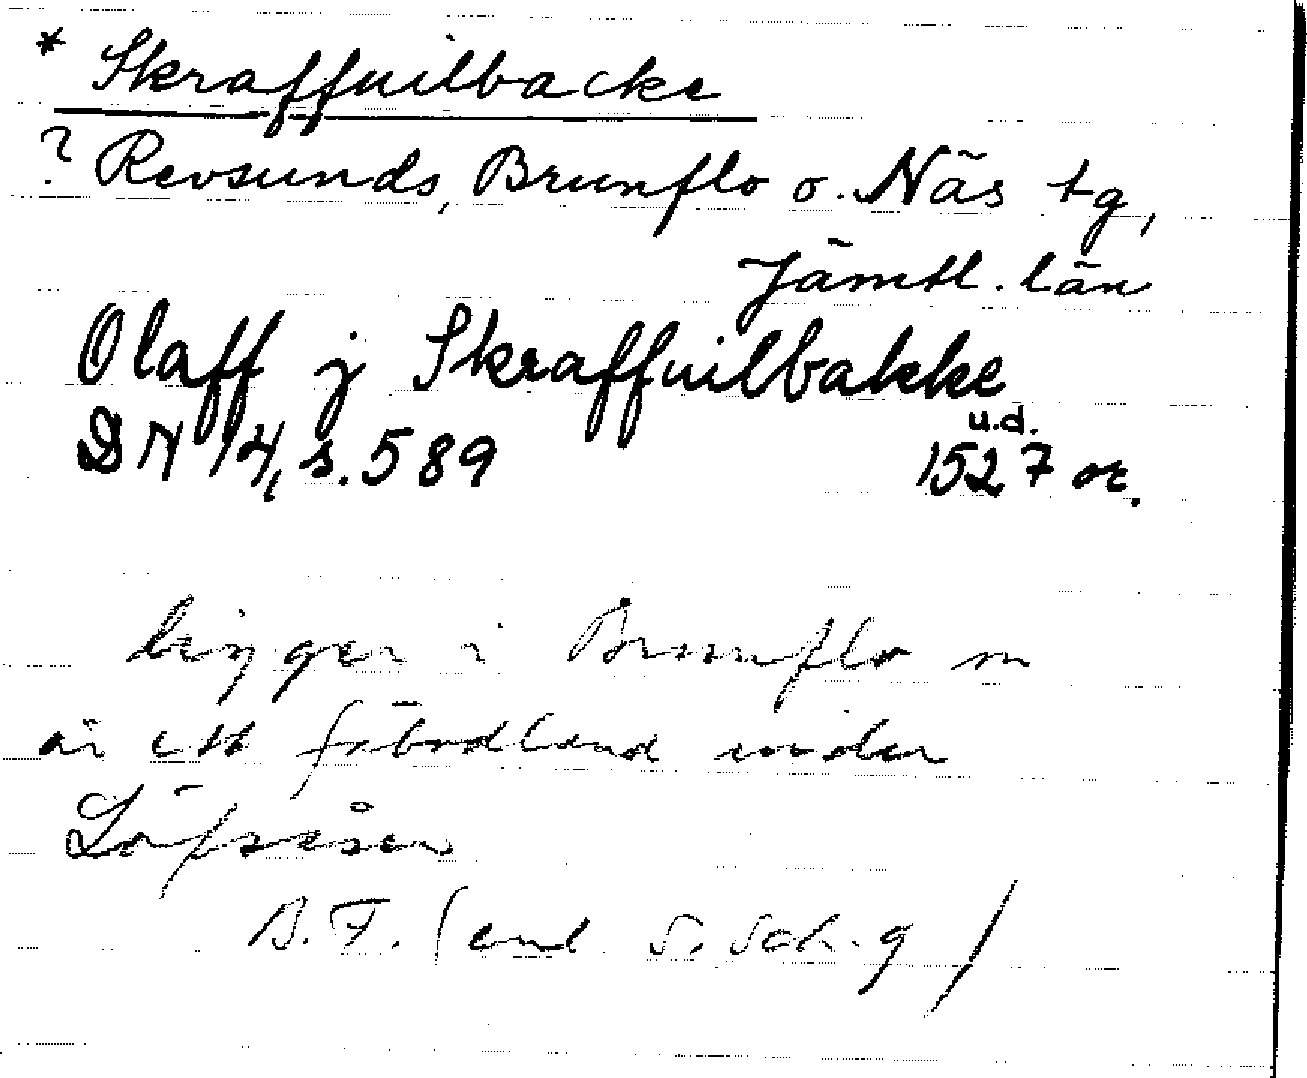 * Skraffuilbacke
? Revsunds, Brunflo o. Näs tg,
Jämtl. län
Olaff j Skraffuilbakke
u.d.
DN 14, s. 589 1527 or.
ligger i Brunflo sn
är ett fäbodland under
Löfsåsen
B.F. (enl. S. Sch.g)